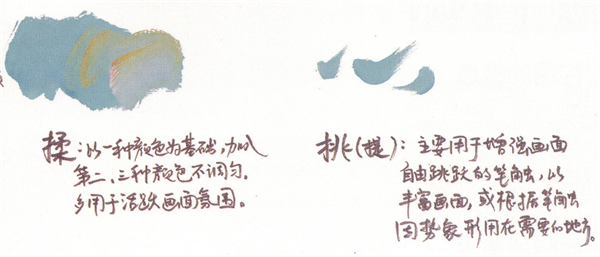 揉：以一种颜色为基础，加以
第二、三种颜色不调匀.
多用于活跃画面氛围。
挑(提)：主要用于增强画面
自由跳跃的笔触，以
丰富画面，或根据笔触
因势象形用在需要的地方。